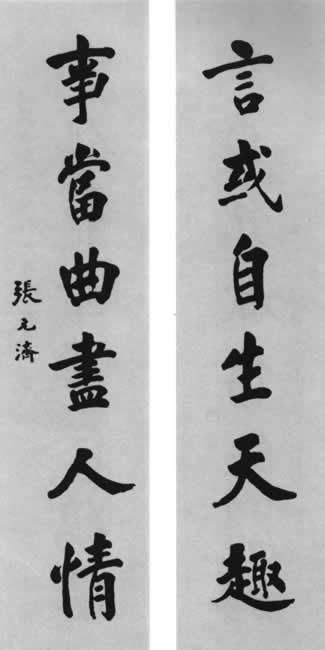 言或自生天趣
事當曲盡人情
張元濟